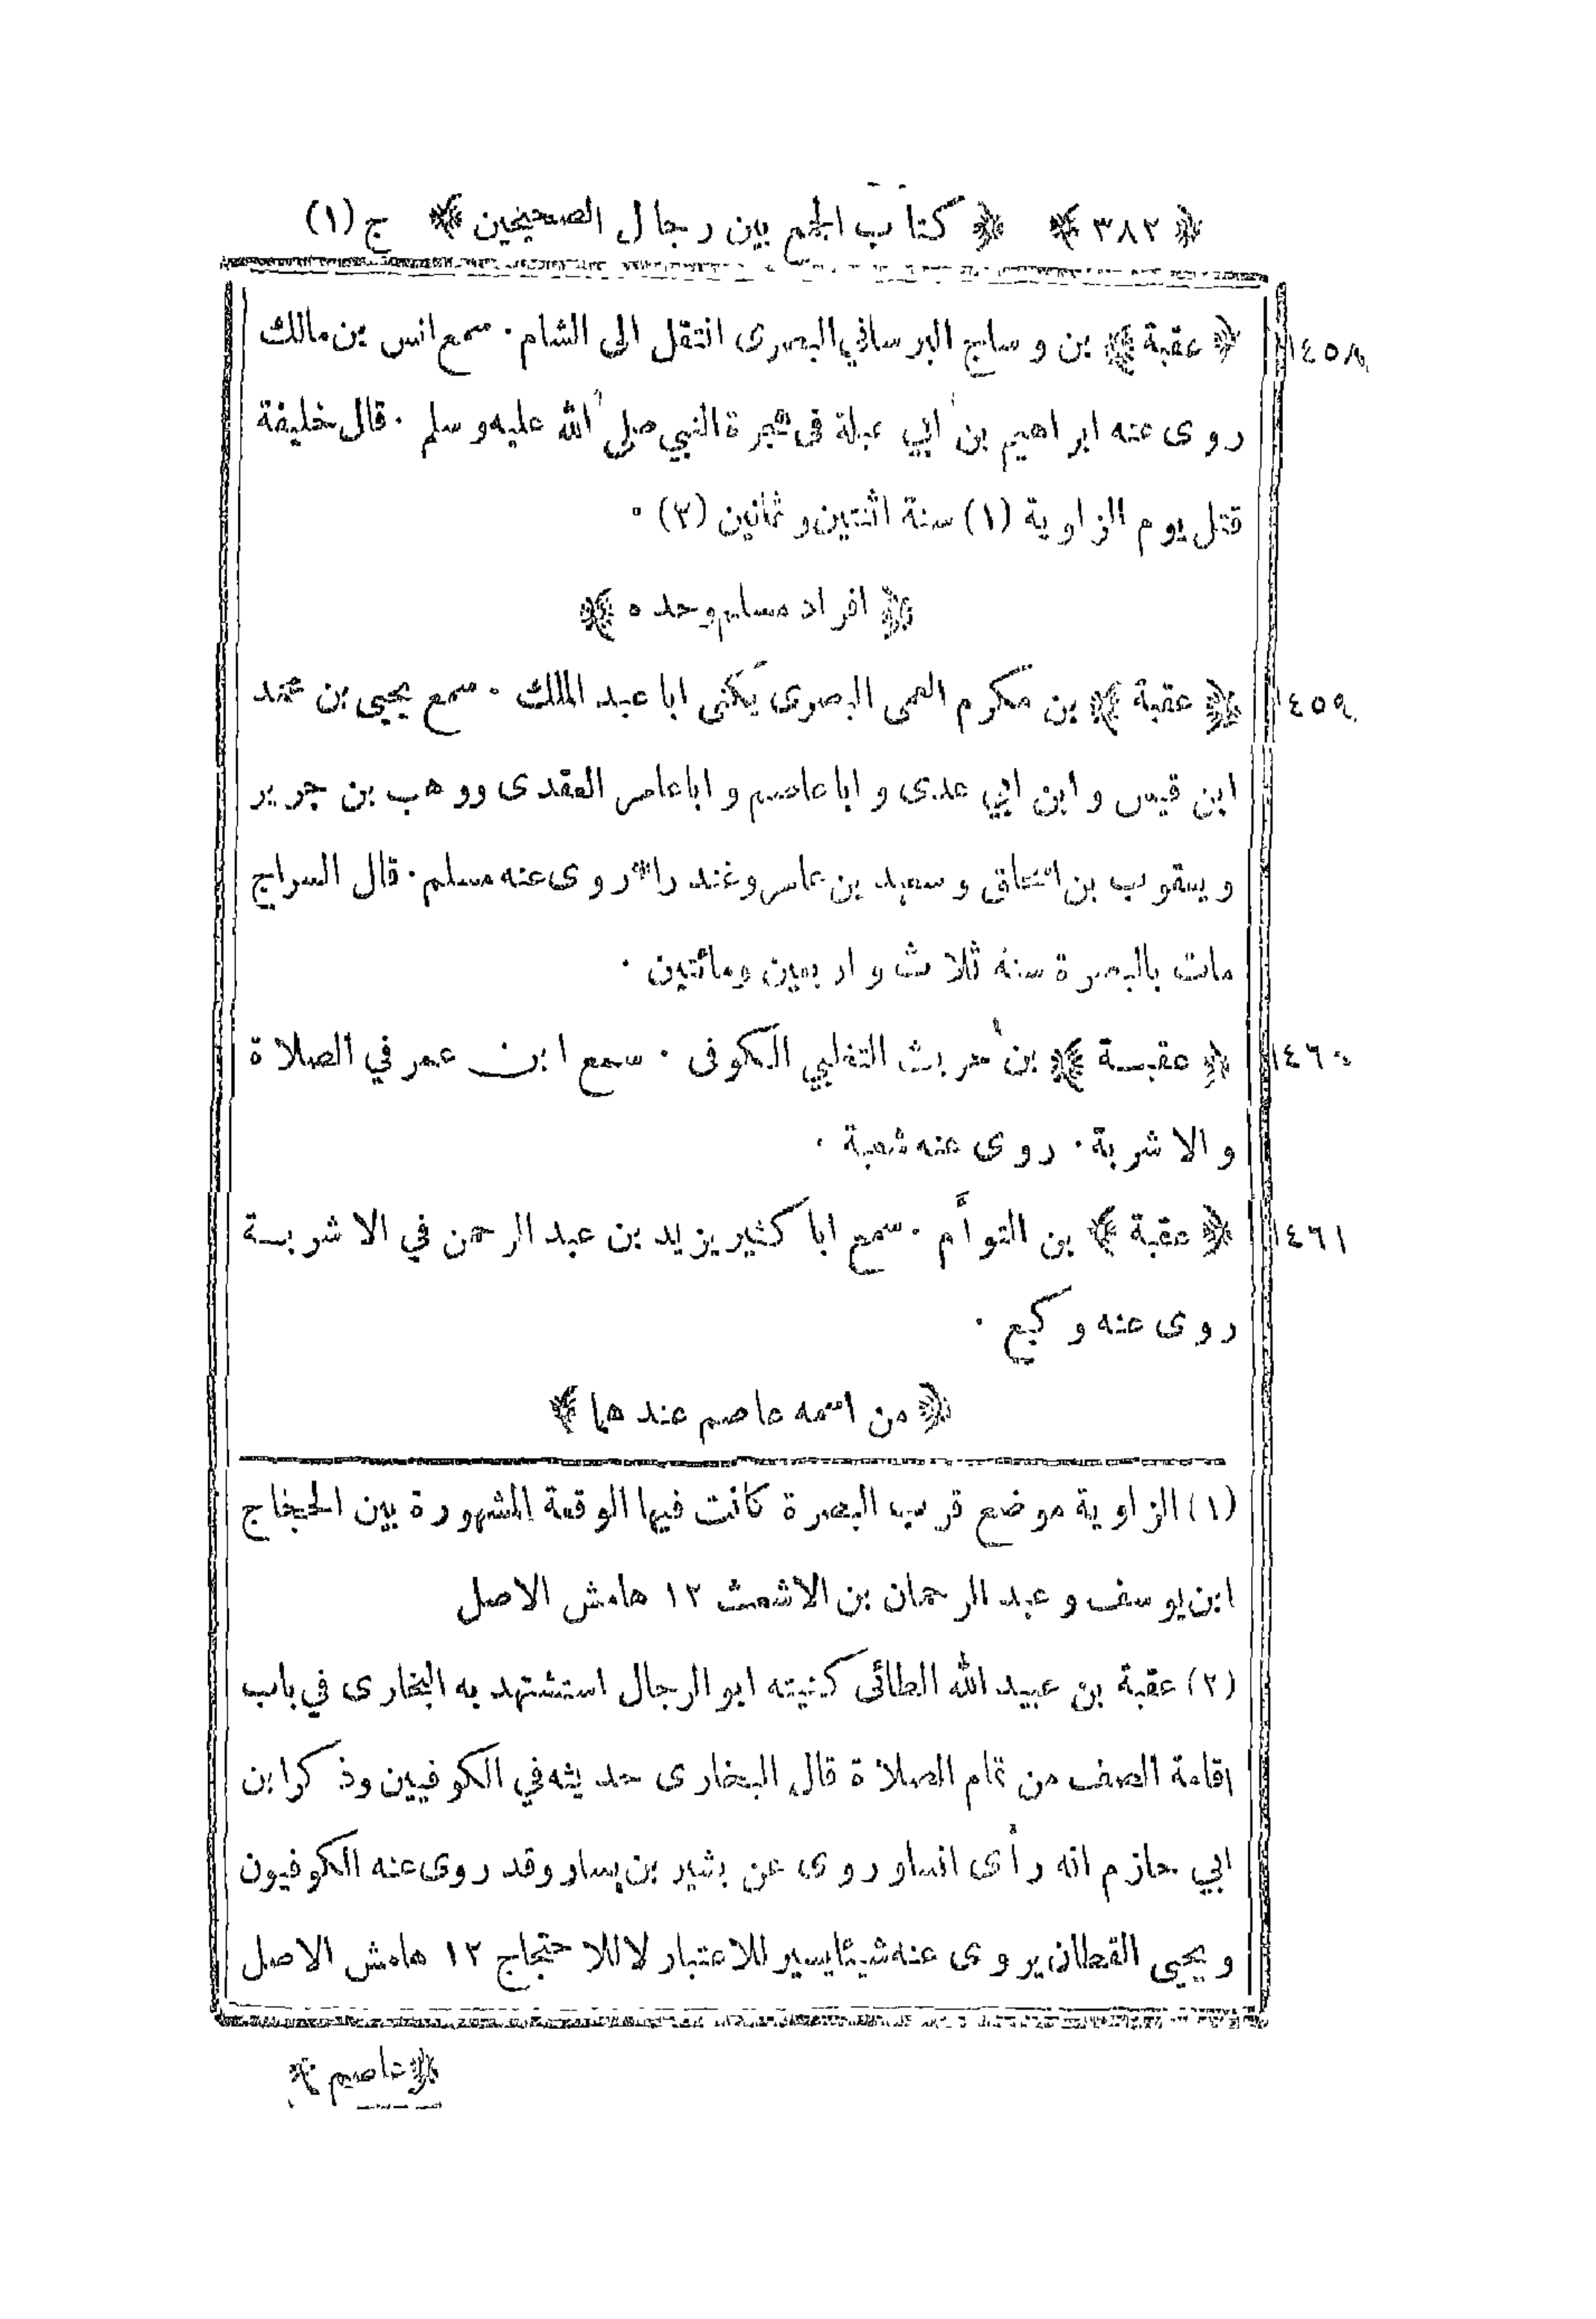 ﴿ ٣٨٢ ﴾ ﴿ كتاب الجمع بين رجال الصحيحين ﴾ ج (١)
١٤٥٨ ﴿ عقبة ﴾ بن وساج البرساني البصرى انتقل الى الشام · سمع انس بن مالك
روى عنه ابراهيم بن ابي عبلة فى هجرة النبي صلى الله عليه وسلم · قال خليفة
قتل يوم الزاوية (١) سنة اثنتين وثمانين (٢) ·
﴿ افراد مسلم وحده ﴾
١٤٥٩ ﴿ عقبة ﴾ بن مكرم العمى البصرى يكنى ابا عبد الملك · سمع يحيى بن محمد
ابن قيس وابن ابي عدى وابا عاصم وابا عامر العقدى ووهب بن جرير
ويعقوب بن اسحاق وسعيد بن عامر وغندرا · روى عنه مسلم · قال السراج
مات بالبصرة سنة ثلاث واربعين ومائتين ·
١٤٦٠ ﴿ عقبة ﴾ بن حريث التغلبي الكوفى · سمع ابن عمر في الصلاة
والاشربة · روى عنه شعبة ·
١٤٦١ ﴿ عقبة ﴾ بن التوأم · سمع ابا كثير يزيد بن عبد الرحمن في الاشربة
روى عنه وكيع ·
﴿ من اسمه عاصم عندهما ﴾
(١) الزاوية موضع قريب البصرة كانت فيها الوقعة المشهورة بين الحجاج
ابن يوسف وعبد الرحمان بن الاشعث ١٢ هامش الاصل
(٢) عقبة بن عبيد الله الطائى كنيته ابو الرجال استشهد به البخارى في باب
اقامة الصف من تمام الصلاة قال البخارى حديثه في الكوفيين وذكر ابن
ابي حازم انه رأى انسا وروى عن بشير بن يسار وقد روى عنه الكوفيون
ويحيى القطان يروى عنه شيئا يسير للاعتبار لا للاحتجاج ١٢ هامش الاصل
﴿ عاصم ﴾